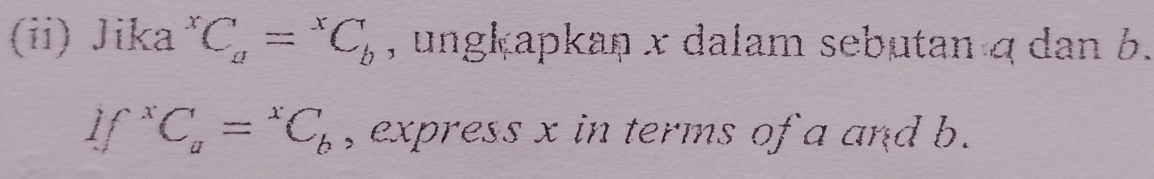 (ii) Jika ˣCₐ = ˣC_b, ungkapkan x dalam sebutan a dan b.
If ˣCₐ = ˣC_b, express x in terms of a and b.